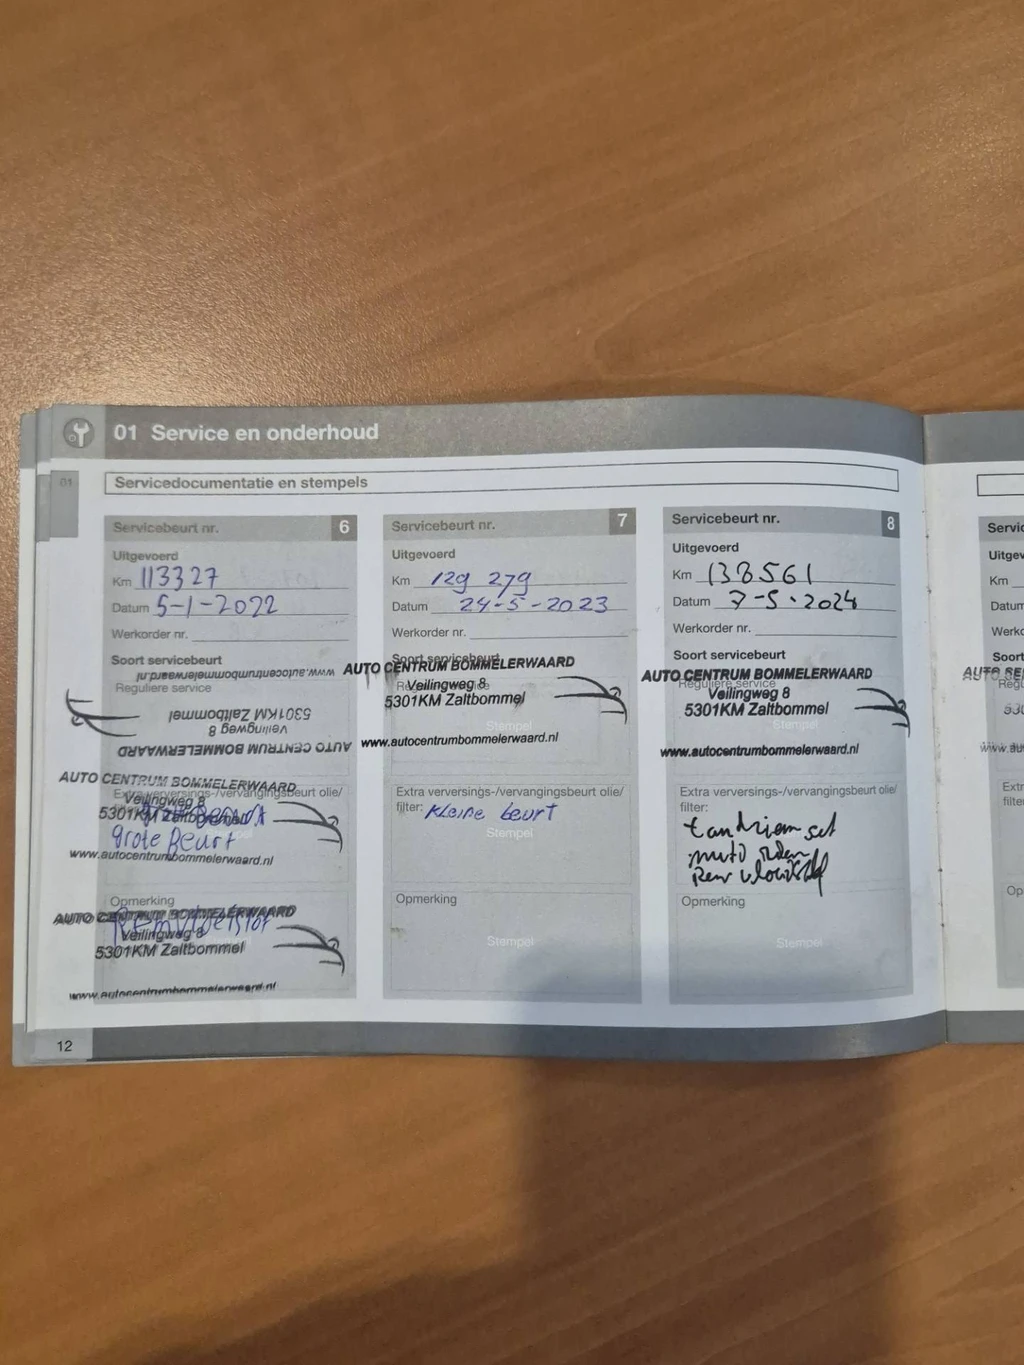 01 Service en onderhoud
01
Servicedocumentatie en stempels
Servicebeurt nr. 6
Uitgevoerd
Km 113327
Datum 5-1-2022
Werkorder nr.
Soort servicebeurt
www.autocentrumbommelerwaard.nl
Reguliere service
5301KM Zaltbommel
Veilingweg 8
AUTO CENTRUM BOMMELERWAARD
AUTO CENTRUM BOMMELERWAARD
Extra verversings-/vervangingsbeurt olie/
Veilingweg 8
5301KM Zaltbommel
grote Beurt
www.autocentrumbommelerwaard.nl
Opmerking
AUTO CENTRUM BOMMELERWAARD
Remvloeistof
Veilingweg 8
5301KM Zaltbommel
www.autocentrumbommelerwaard.nl
Servicebeurt nr. 7
Uitgevoerd
Km 129 279
Datum 24-5-2023
Werkorder nr.
Soort servicebeurt
AUTO CENTRUM BOMMELERWAARD
Veilingweg 8
5301KM Zaltbommel
Stempel
www.autocentrumbommelerwaard.nl
Extra verversings-/vervangingsbeurt olie/
filter: kleine beurt
Stempel
Opmerking
Stempel
Servicebeurt nr. 8
Uitgevoerd
Km 138561
Datum 7-5-2024
Werkorder nr.
Soort servicebeurt
AUTO CENTRUM BOMMELERWAARD
Reguliere service
Veilingweg 8
5301KM Zaltbommel
Stempel
www.autocentrumbommelerwaard.nl
Extra verversings-/vervangingsbeurt olie/
filter:
tandriem set
Opmerking
Stempel
12
Km